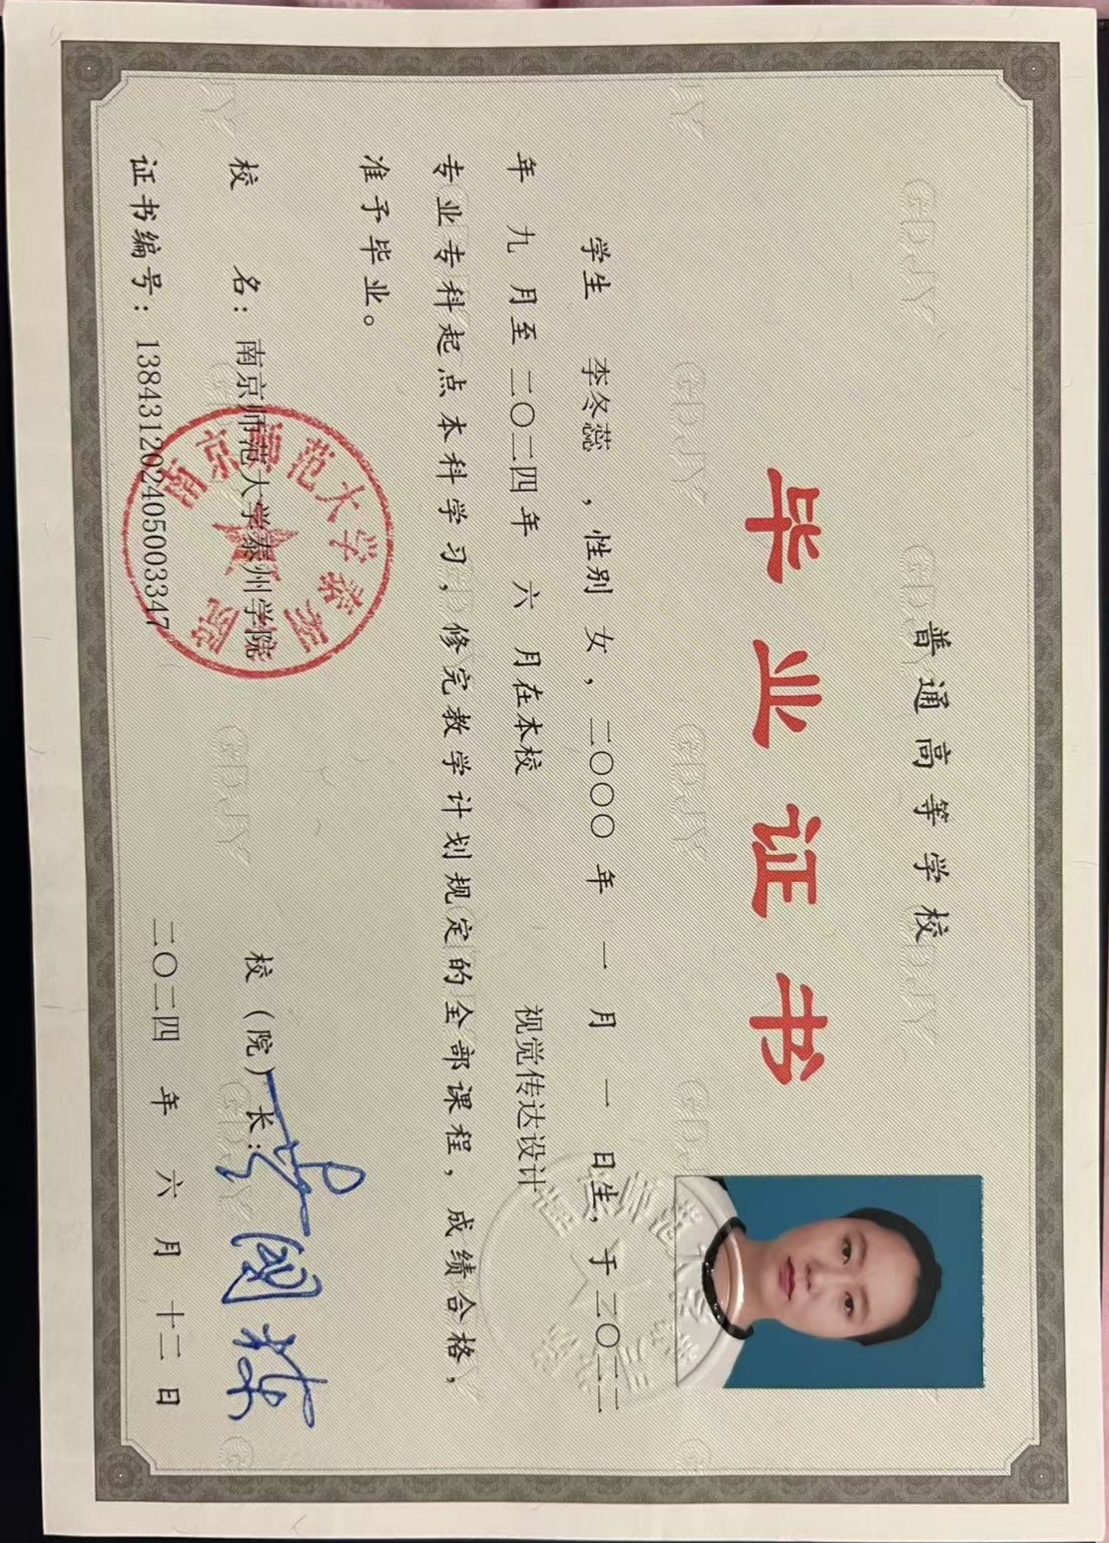 普通高等学校
毕业证书
学生 李冬蕊 ，性别 女，二〇〇〇 年 一 月 一 日生，于二〇二二
年 九 月至 二〇二四 年 六 月在本校 视觉传达设计
专业专科起点本科学习，修完教学计划规定的全部课程，成绩合格，
准予毕业。
校 名：南京师范大学泰州学院 校（院）长：
证书编号：138431202405003347 二〇二四 年 六 月 十二 日
南京师范大学泰州学院